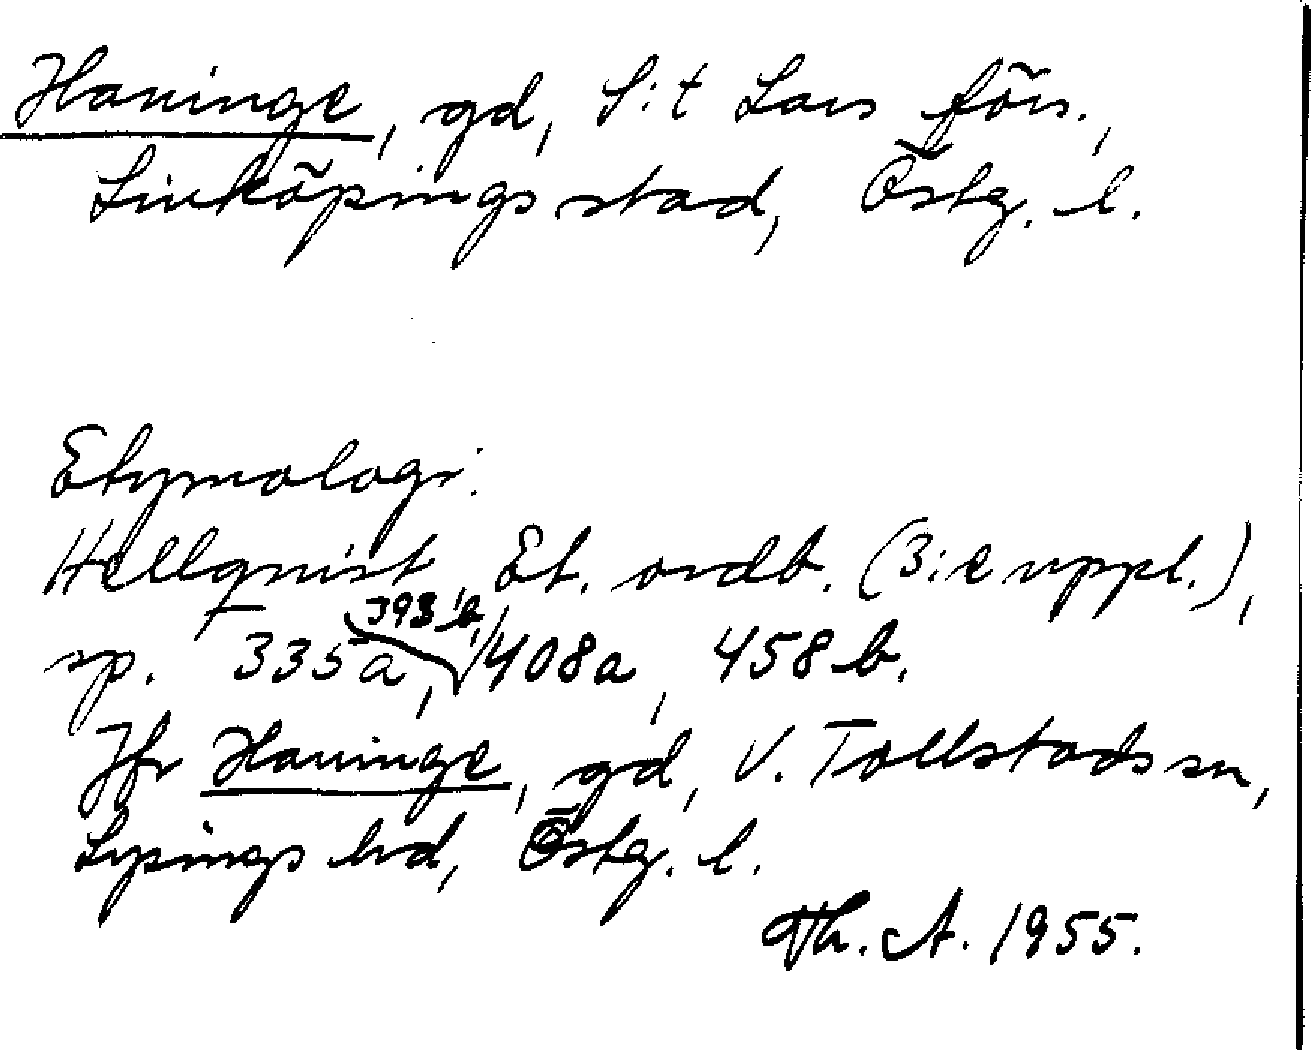 Haninge, gd, S:t Lars förs.,
Linköpings stad, Östg. l.
Etymologi:
Hellquist, Et. ordb. (3:e uppl.),
sp. 335a, 393 b, 408a, 458 b.
Jfr Haninge, gd, V. Tollstads sn,
Lysings hd, Östg. l.
Th. A. 1955.